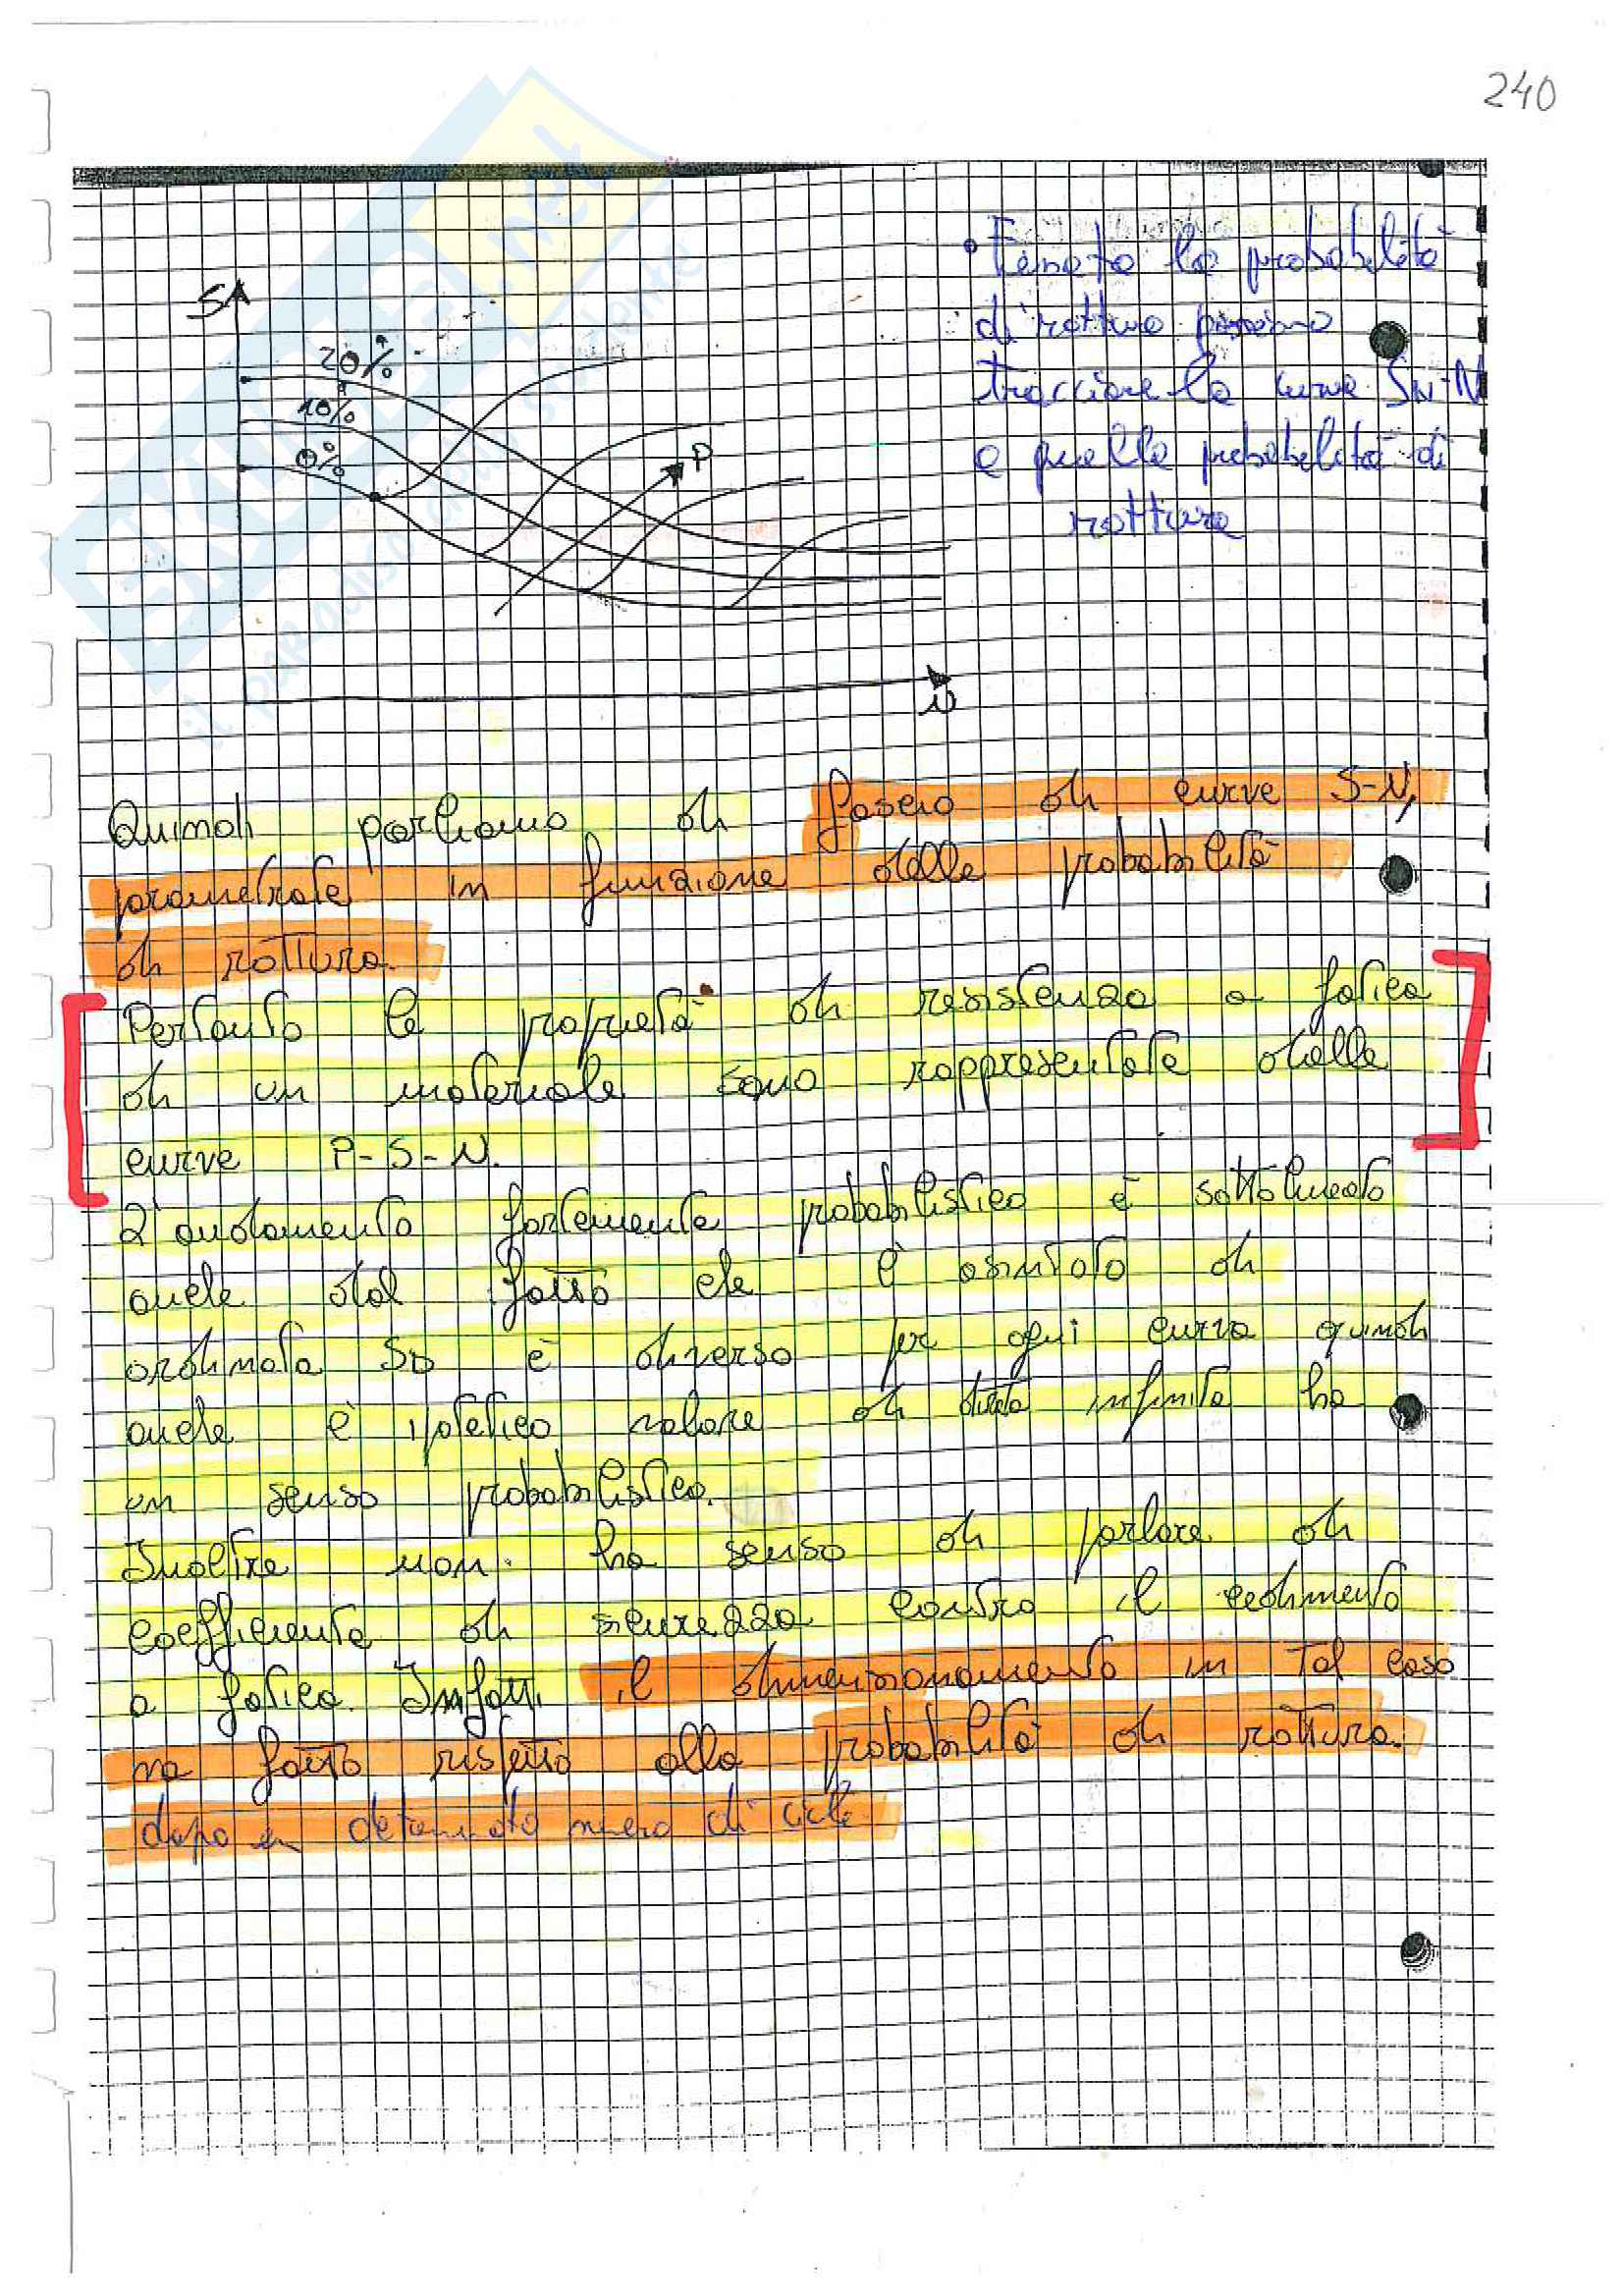 240
• Fissata la probabilità
di rottura possiamo
tracciare la curva SN-N
a quella probabilità di
rottura
S
20%
10%
0%
P
N
Quindi parliamo di fascio di curve S-N,
parametrate in funzione della probabilità
di rottura.
Pertanto le proprietà di resistenza a fatica
di un materiale sono rappresentate dalle
curve P-S-N.
L'andamento fortemente probabilistico è sottolineato
anche dal fatto che l'asintoto di
ordinata SD è diverso per ogni curva quindi
anche l'ipotetico valore di durata infinita ha
un senso probabilistico.
Inoltre non ha senso di parlare di
coefficiente di sicurezza contro il cedimento
a fatica. Infatti il dimensionamento in tal caso
va fatto rispetto alla probabilità di rottura.
dopo un determinato numero di cicli
il paradiso dello studente